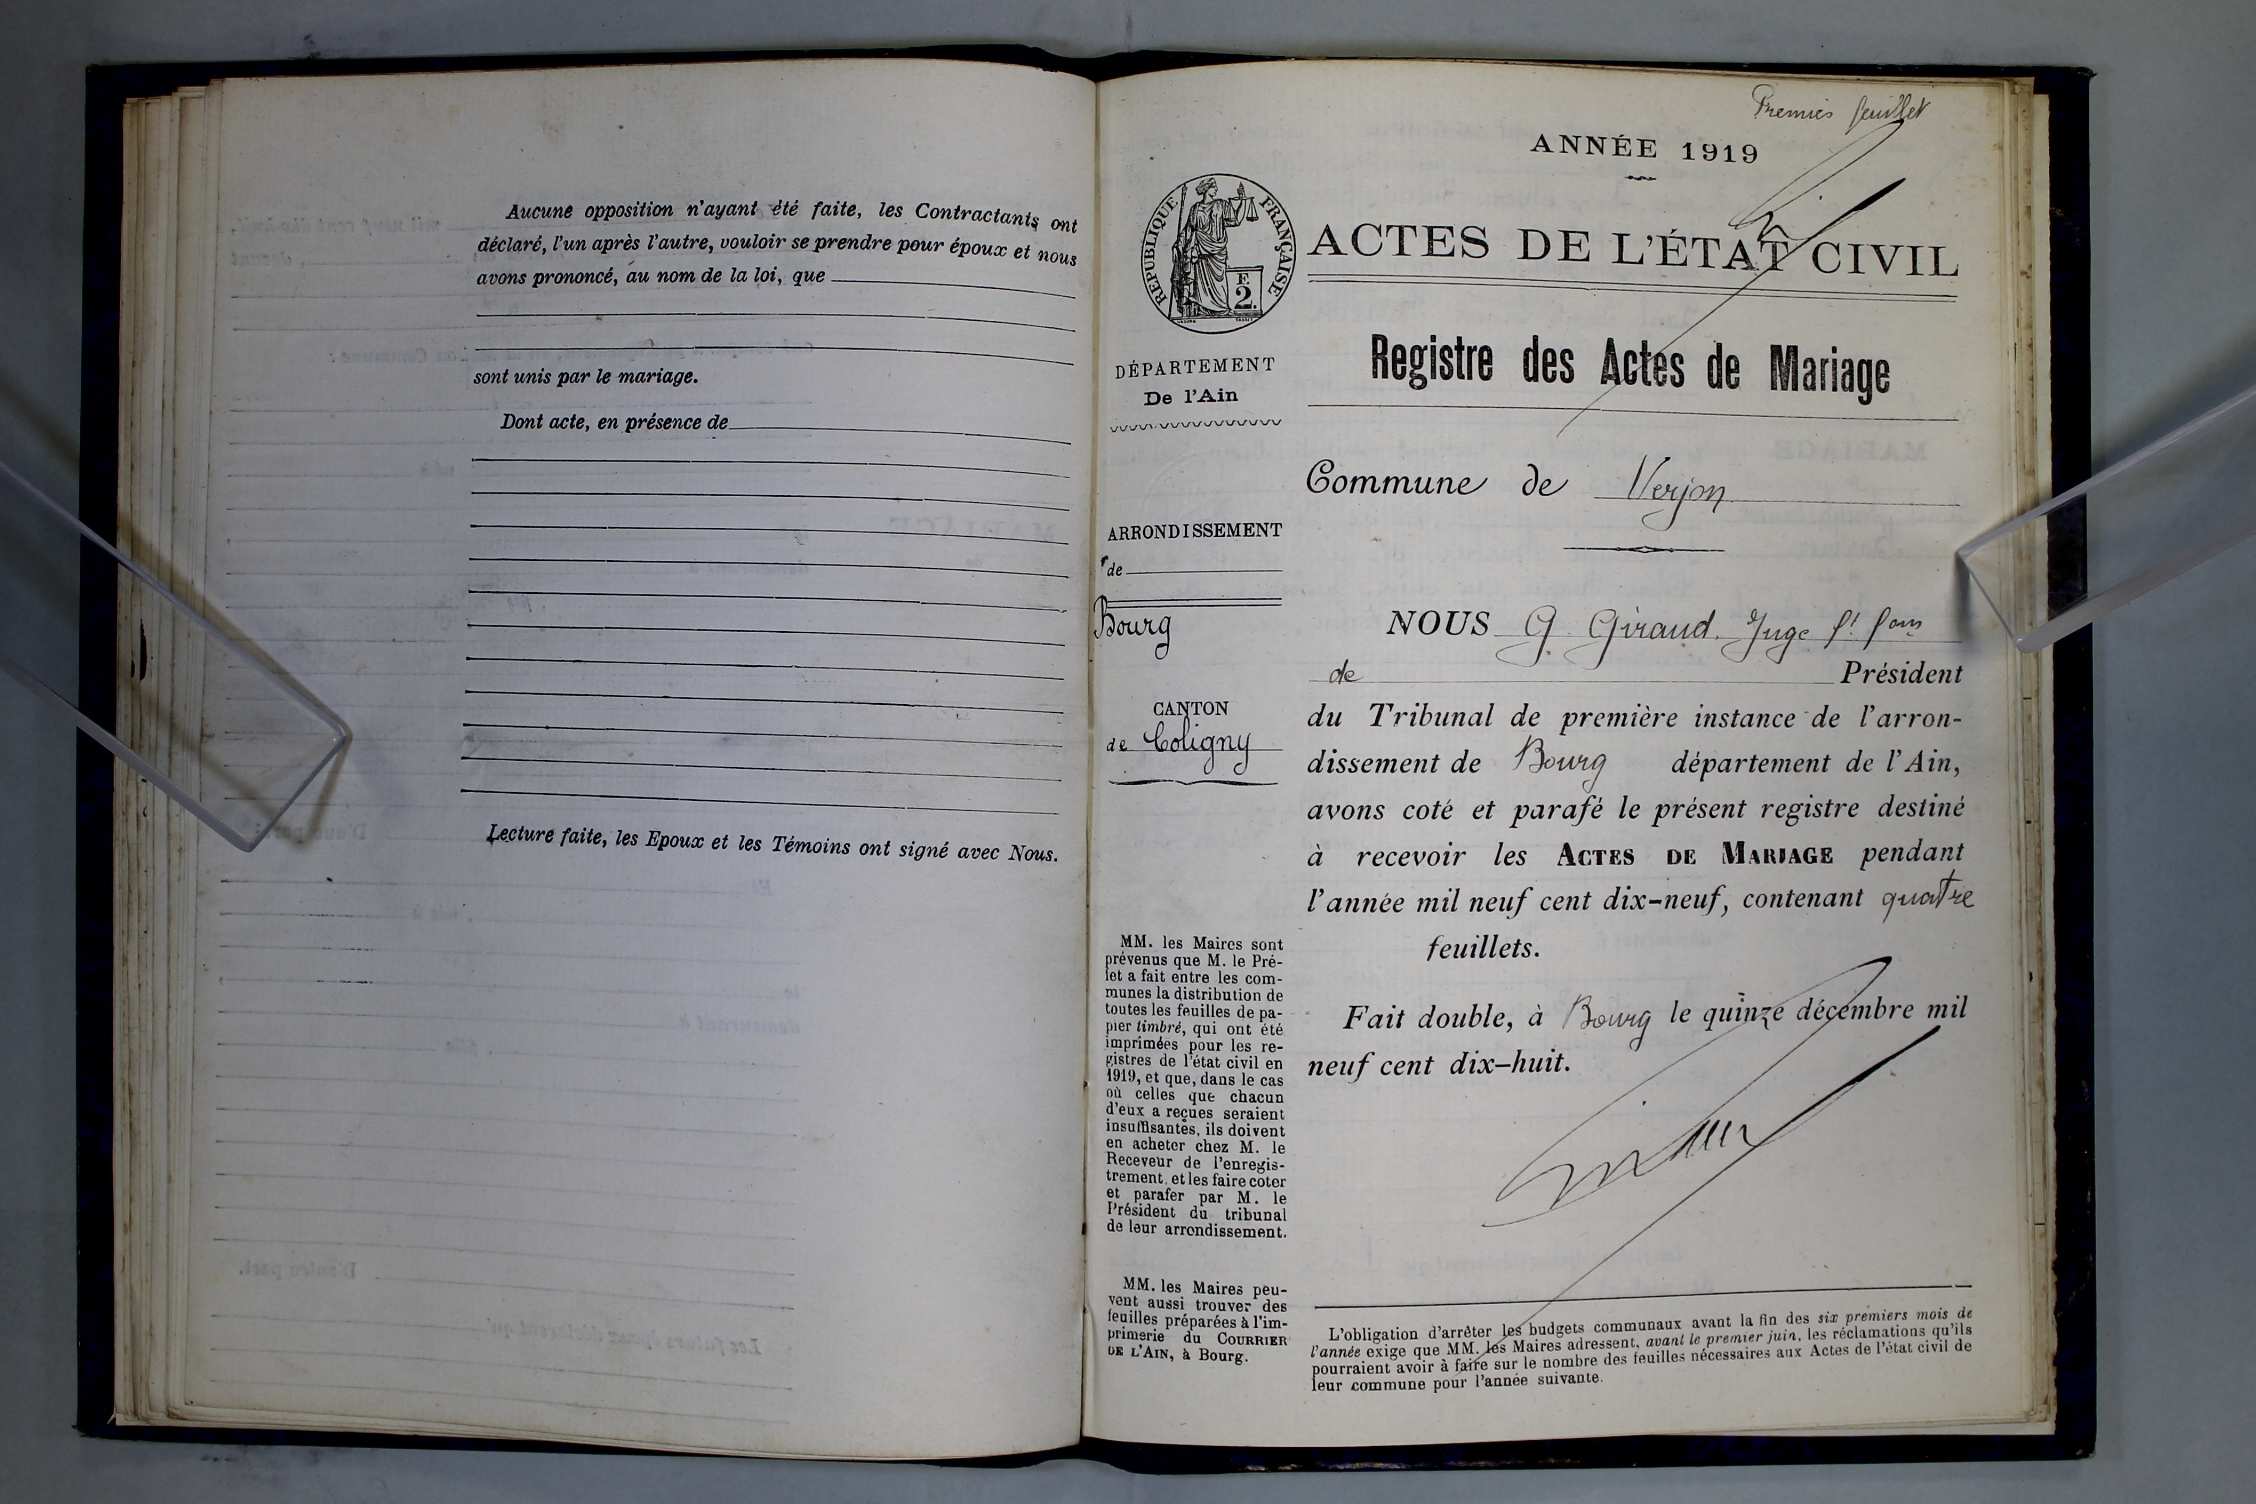 Aucune opposition n'ayant été faite, les Contractants ont
déclaré, l'un après l'autre, vouloir se prendre pour époux et nous
avons prononcé, au nom de la loi, que
sont unis par le mariage.
Dont acte, en présence de
Lecture faite, les Epoux et les Témoins ont signé avec Nous.
Premier feuillet
ANNÉE 1919
RÉPUBLIQUE FRANÇAISE
F
2.
ACTES DE L'ÉTAT CIVIL
Registre des Actes de Mariage
DÉPARTEMENT
De l'Ain
ARRONDISSEMENT
de
Bourg
CANTON
de Coligny
MM. les Maires sont
prévenus que M. le Pré-
fet a fait entre les com-
munes la distribution de
toutes les feuilles de pa-
pier timbré, qui ont été
imprimées pour les re-
gistres de l'état civil en
1919, et que, dans le cas
où celles que chacun
d'eux a reçues seraient
insuffisantes, ils doivent
en acheter chez M. le
Receveur de l'enregis-
trement, et les faire coter
et parafer par M. le
Président du tribunal
de leur arrondissement.
MM. les Maires peu-
vent aussi trouver des
feuilles préparées à l'im-
primerie du COURRIER
DE L'AIN, à Bourg.
Commune de Verjon
NOUS G. Giraud Juge
de Président
du Tribunal de première instance de l'arron-
dissement de Bourg département de l'Ain,
avons coté et parafé le présent registre destiné
à recevoir les ACTES DE MARIAGE pendant
l'année mil neuf cent dix-neuf, contenant quatre
feuillets.
Fait double, à Bourg le quinze décembre mil
neuf cent dix-huit.
L'obligation d'arrêter les budgets communaux avant la fin des six premiers mois de
l'année exige que MM. les Maires adressent, avant le premier juin, les réclamations qu'ils
pourraient avoir à faire sur le nombre des feuilles nécessaires aux Actes de l'état civil de
leur commune pour l'année suivante.